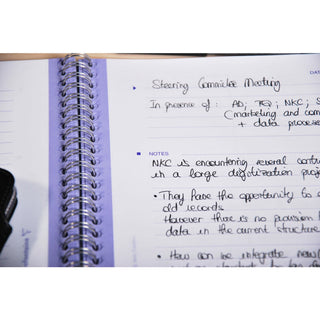 DAT
Steering Committee Meeting
In presence of : AD ; TQ ; NKC ; S
(marketing and com
+ data processe
NOTES
NKC is encountering several contr
in a large digitization proje
• They have the opportunity to
old records
However there is no provision
data in the current structure
• How can we integrate new